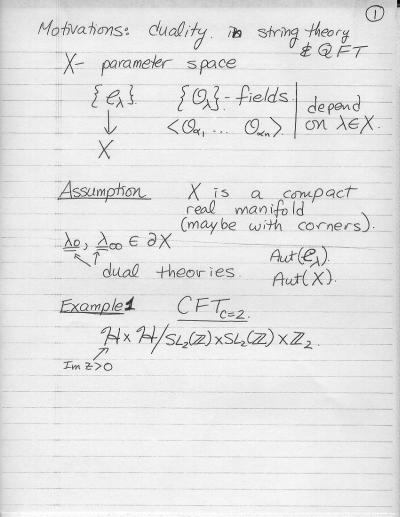 ①
Motivations: duality in string theory
& QFT
X- parameter space
{𝒞_λ} {𝒪_λ}- fields depend
↓ <𝒪_α₁ ... 𝒪_αn> on λ∈X.
X
Assumption X is a compact
real manifold
(maybe with corners).
λ₀, λ_∞ ∈ ∂X Aut(𝒞_λ)
dual theories. Aut(X).
Example 1 CFT_c=2.
ℋ × ℋ/SL₂(ℤ)×SL₂(ℤ)×ℤ₂.
Im z>0